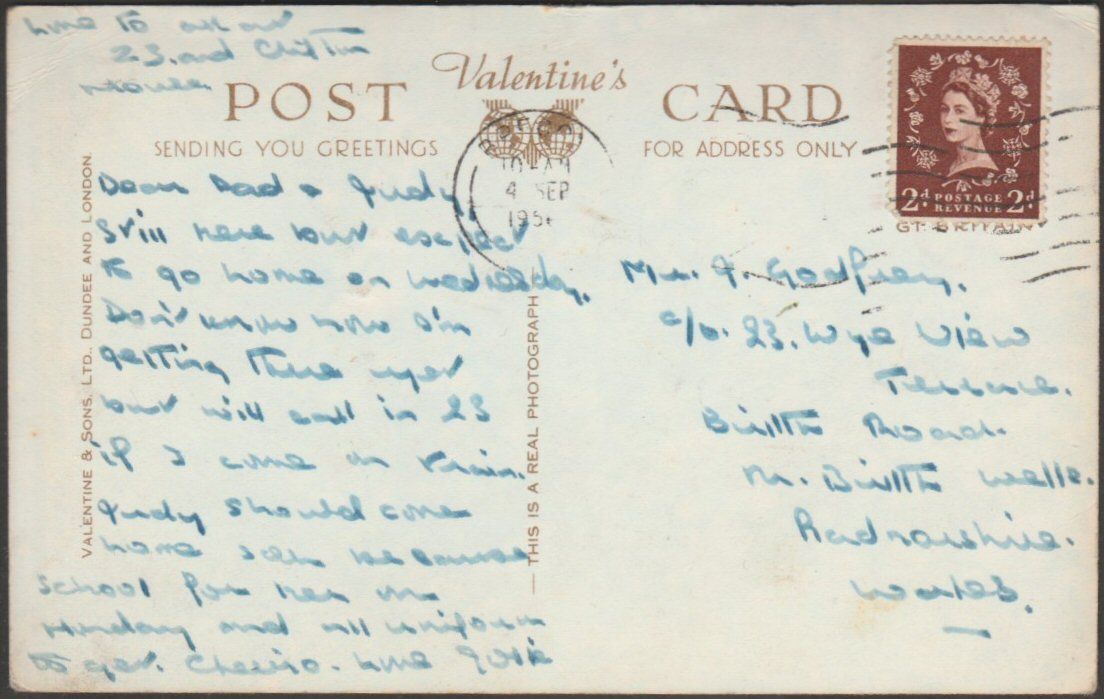 love to all at
23. and Clifton
House.
Valentine's
POST CARD
SENDING YOU GREETINGS
FOR ADDRESS ONLY
10-AM
4 SEP
195
2d POSTAGE REVENUE 2d
GT. BRITAIN
Dear Dad & Judy
Still here but expect
to go home on Wednesday.
Don't know how I'm
getting there yet
but will call in 23
if I come on train.
Judy should come
home soon because
school for her on
Monday and all uniform
to get. Cheerio. Love Josie
Mr. J. Godfrey.
c/o. 23. Wye View
Terrace.
Builth Road.
Nr. Builth Wells.
Radnorshire.
Wales.
VALENTINE & SONS, LTD., DUNDEE AND LONDON.
THIS IS A REAL PHOTOGRAPH